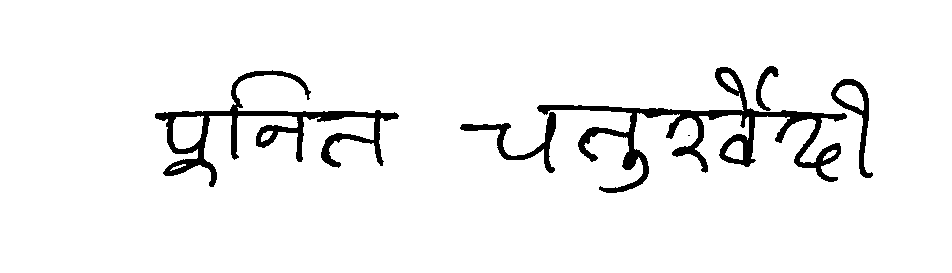 पूनित चतुर्वेदी